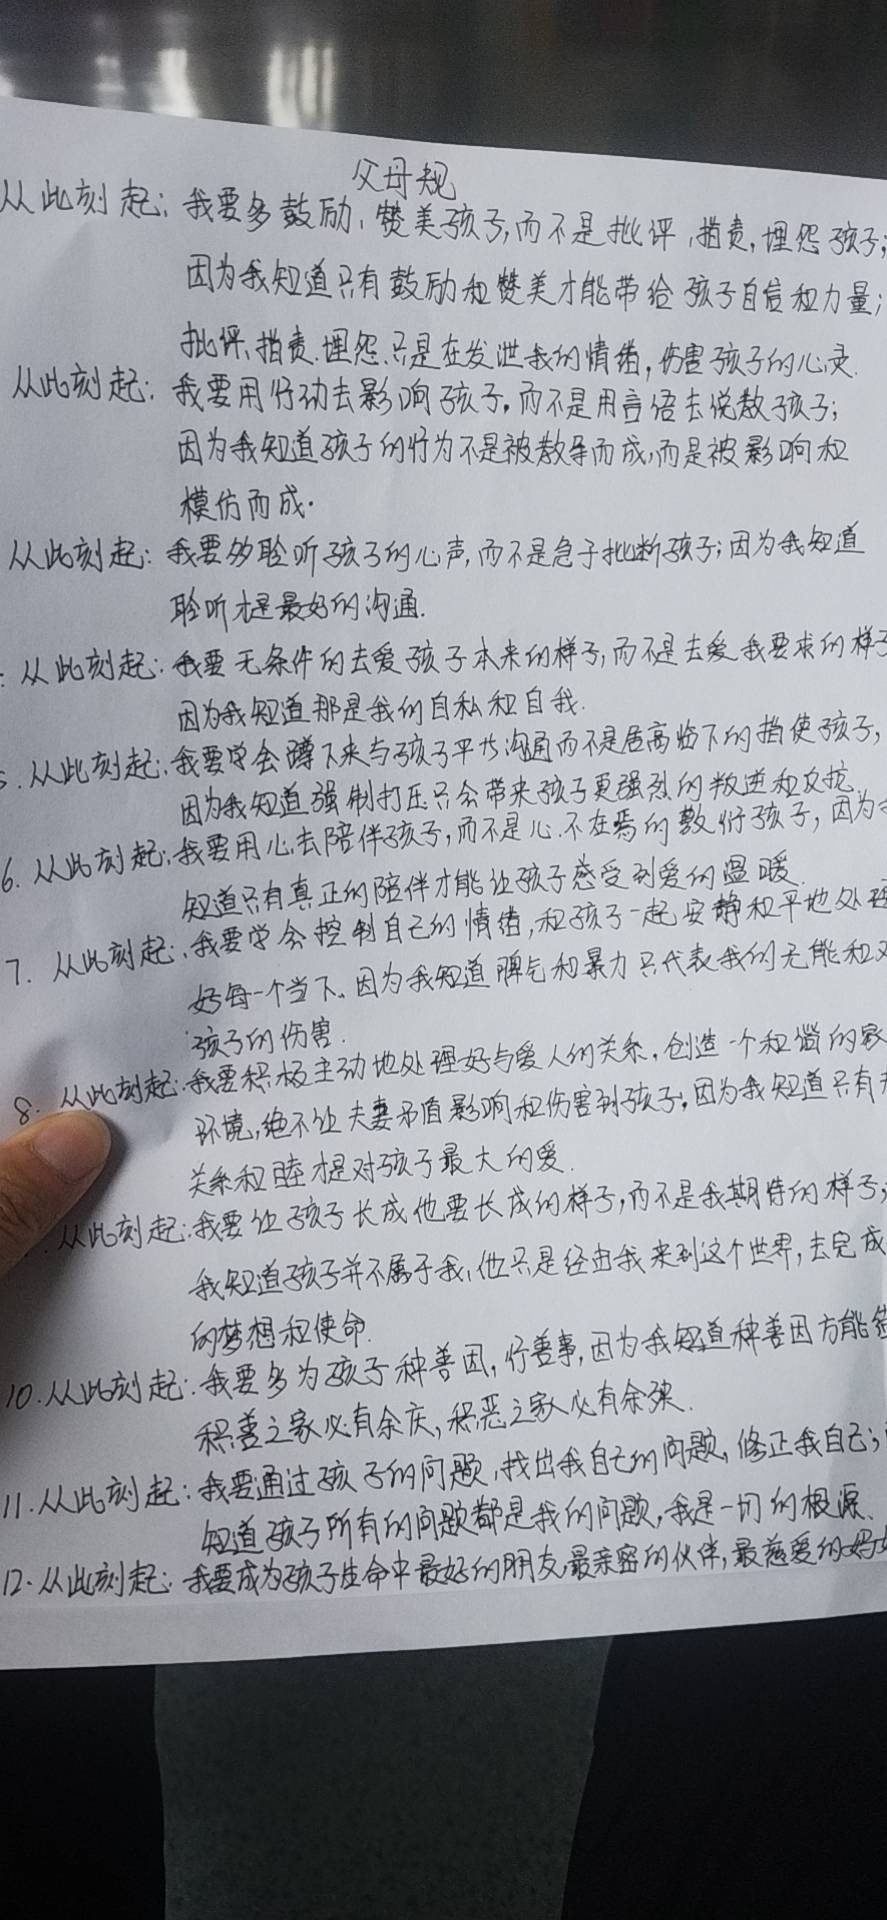 父母规
从此刻起：我要多鼓励、赞美孩子，而不是批评、指责，埋怨孩子；
因为我知道只有鼓励和赞美才能带给孩子自信和力量；
批评、指责、埋怨、只是在发泄我的情绪，伤害孩子的心灵.
从此刻起：我要用行动去影响孩子，而不是用言语去说教孩子；
因为我知道孩子的行为不是被教导而成，而是被影响和
模仿而成.
从此刻起：我要多聆听孩子的心声，而不是急于批断孩子；因为我知道
聆听才是最好的沟通.
从此刻起：我要无条件的去爱孩子本来的样子，而不是去爱我要求的样子
因为我知道那是我的自私和自我.
从此刻起：我要学会蹲下来与孩子平and沟通而不是居高临下的指使孩子，
因为我知道强制打压只会带来孩子更强烈的叛逆和反抗.
6. 从此刻起：我要用心去陪伴孩子，而不是心不在焉的敷衍孩子，因为
知道只有真正的陪伴才能让孩子感受到爱的温暖.
7. 从此刻起：我要学会控制自己的情绪，和孩子一起安静和平地处理
好每一个当下、因为我知道脾气和暴力只代表我的无能和对
孩子的伤害.
8. 从此刻起：我要积极主动地处理好与爱人的关系，创造一个和谐的家
环境，绝不让夫妻矛盾影响和伤害到孩子；因为我知道只有夫
关系和睦才是对孩子最大的爱.
从此刻起：我要让孩子长成他要长成的样子，而不是我期待的样子；
我知道孩子并不属于我，他只是经由我来到这个世界，去完成
的梦想和使命.
10. 从此刻起：我要多为孩子种善因，行善事，因为我知道种善因方能结
积善之家必有余庆，积恶之家必有余殃.
11. 从此刻起：我要通过孩子的问题，找出我自己的问题，修正我自己；
知道孩子所有的问题都是我的问题，我是一切的根源、
12. 从此刻起：我要成为孩子生命中最好的朋友，最亲密的伙伴，最慈爱的妈